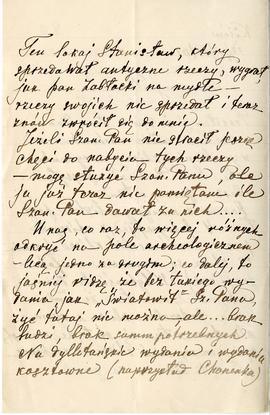 Ten lokaj Stanisław, który
sprzedawał antyczne rzeczy, wygrał
jak pan Zabłocki na mydle —
rzeczy swoich nie sprzedał i teraz
znów zwrócił się do mnie.
Jeżeli Szan. Pan nie stracił jeszcze
chęci do nabycia tych rzeczy
— mogę służyć Szan. Panu ale
ja już teraz nie pamiętam ile
Szan. Pan dawał za nich....
U nas, co raz, to więcej różnych
odkryć na pole archeologicznem
— lecą jedno za drugiem; co dalej, to
jaśniej widzę że bez takiego wy-
dania jak „Światowit" Sz. Pana,
żyć tutaj nie można — ale... brak
ludzi, brak summ potrzebnych
Na dylletanckie wydania i wydania
kosztowne (naprzykład Chanenka)